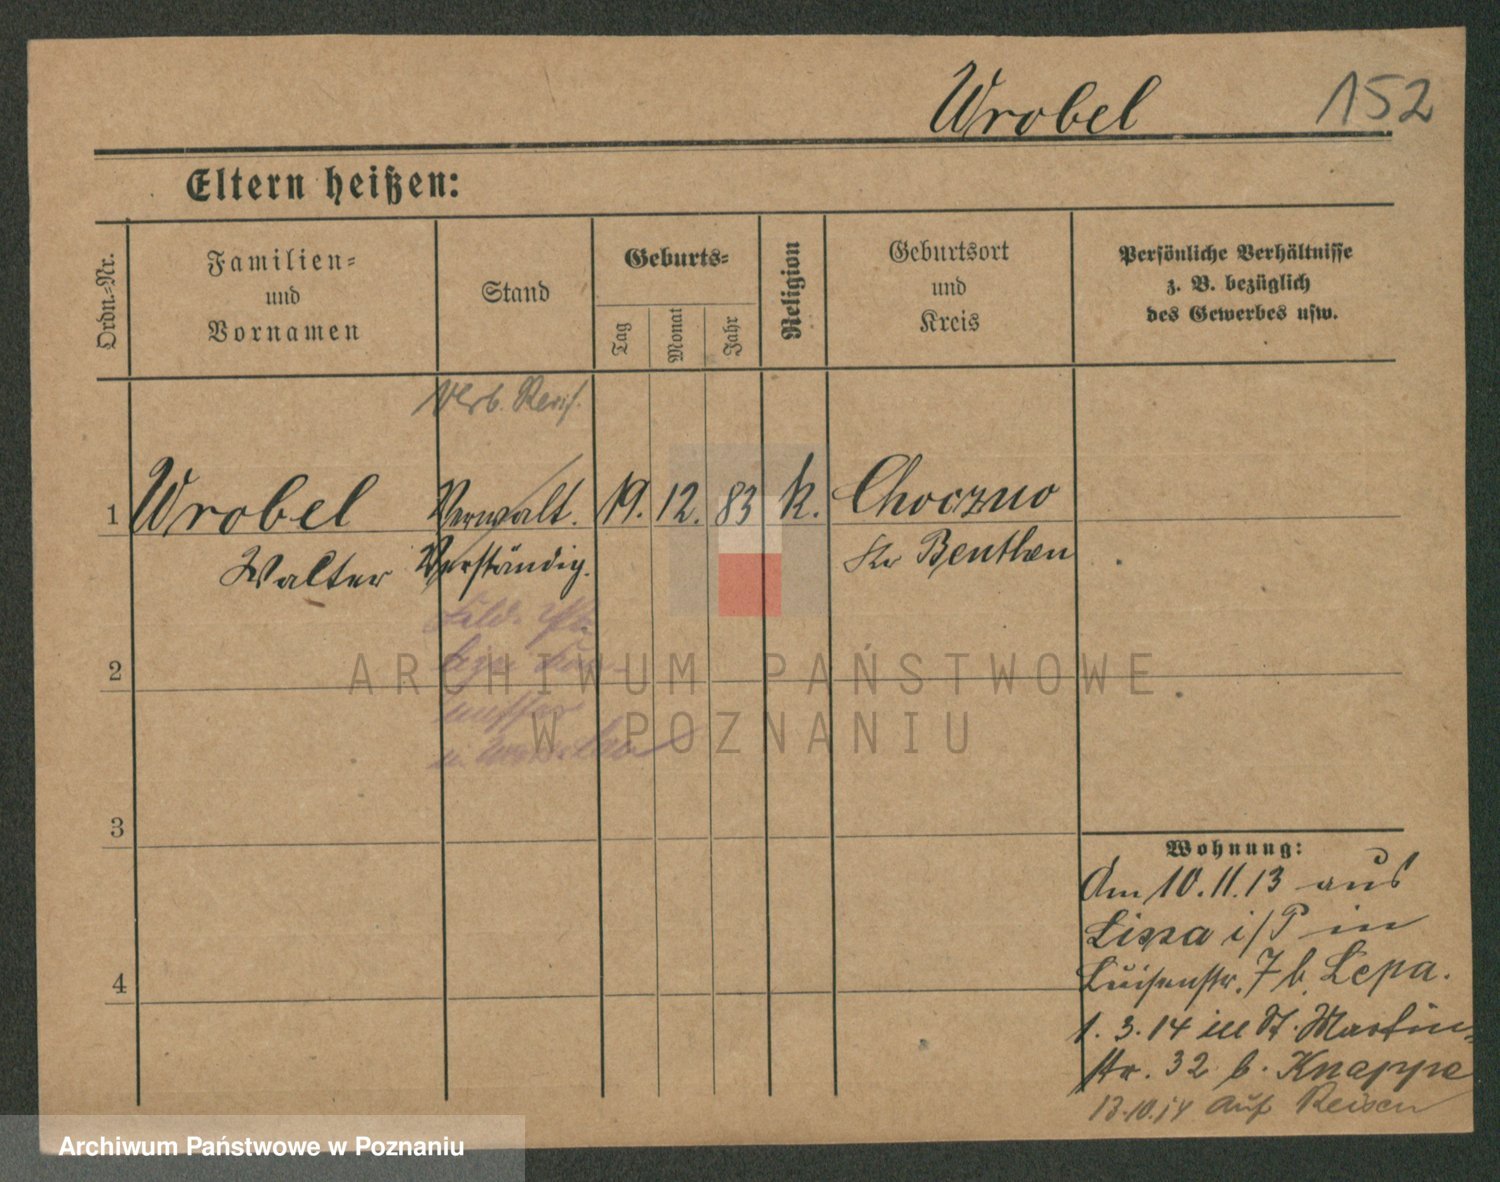 Wrobel 152
Eltern heißen:
Ordn.=Nr.
Familien=
und
Vornamen
Stand
Geburts=
Tag
Monat
Jahr
Religion
Geburtsort
und
Kreis
Persönliche Verhältnisse
z. B. bezüglich
des Gewerbes usw.
1 Wrobel Verwalt. 19. 12. 83 k. Choczno
Walter Verständig. Kr Benthen
2
3
4
Wohnung:
Am 10.11.13 aus
Lissa i/P in
Luisenstr. 7 b. Lepa.
1.3.14 in St. Martin=
str. 32 b. Knappe
13.10.14 auf Reisen
ARCHIWUM PAŃSTWOWE
W POZNANIU
Archiwum Państwowe w Poznaniu